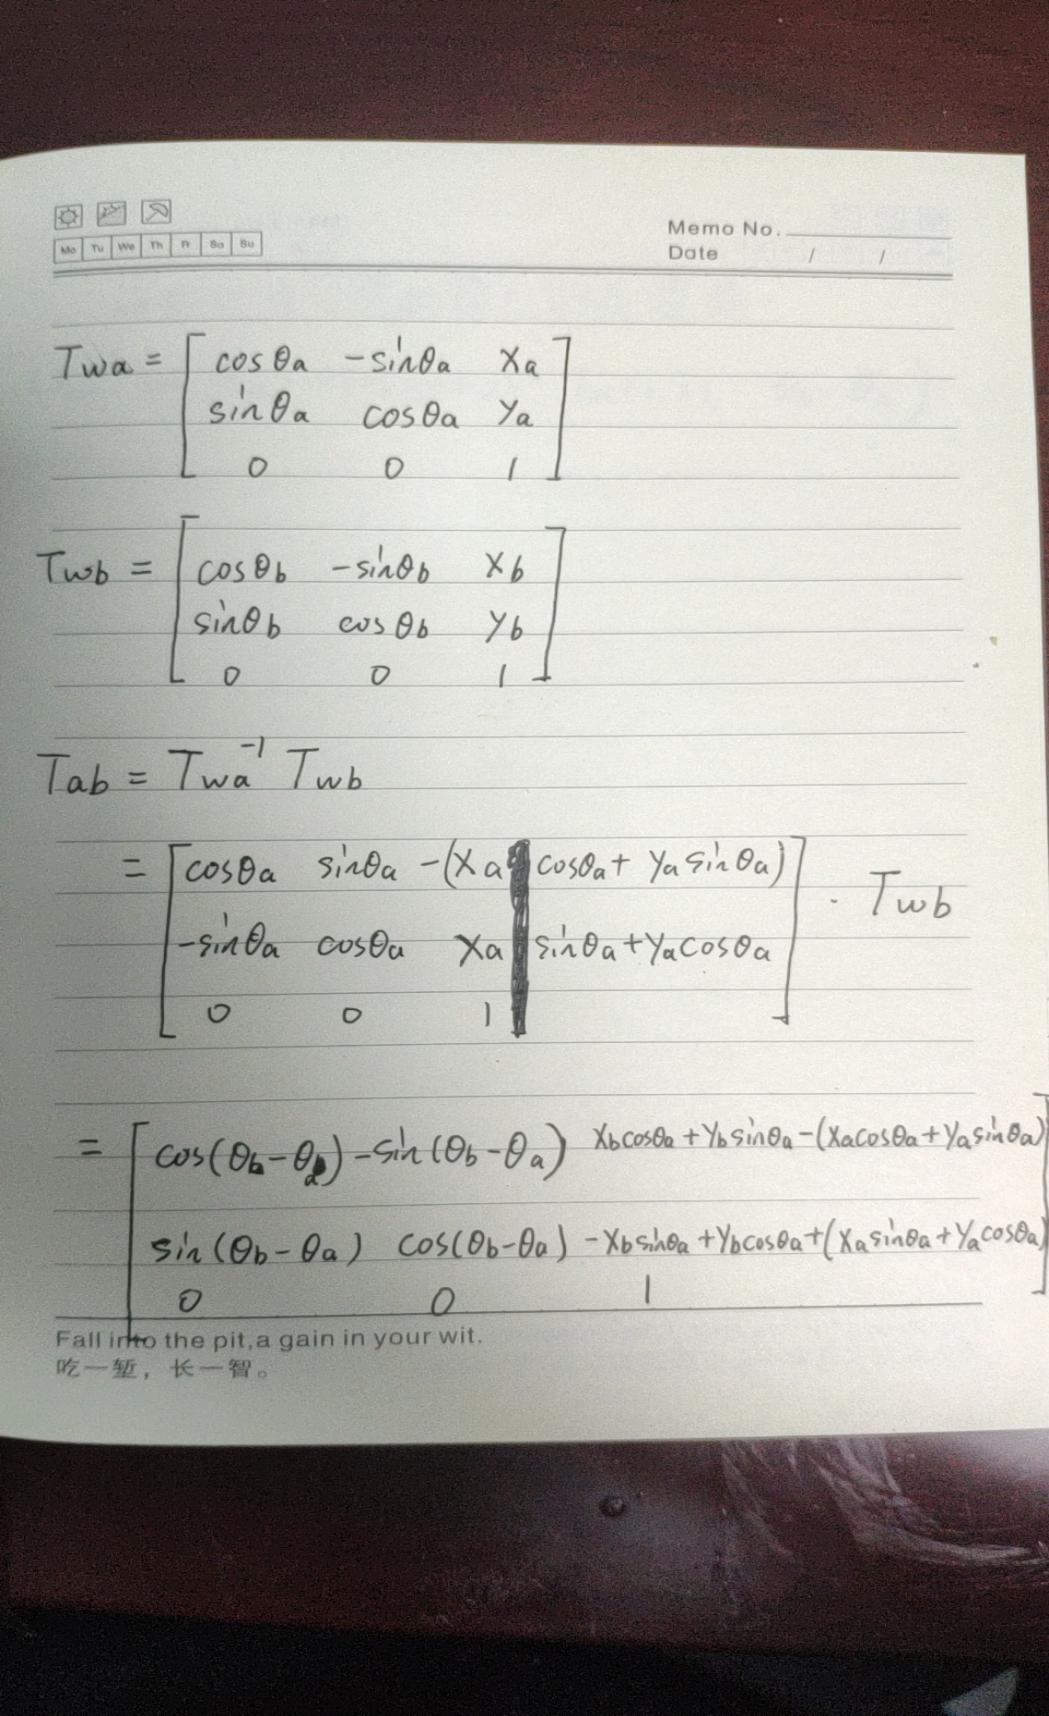 Memo No.
Mo Tu We Th Fr Sa Su
Date / /
Twa = [ cosθa -sinθa xa ]
sinθa cosθa ya
0 0 1
Twb = [ cosθb -sinθb xb ]
sinθb cosθb yb
0 0 1
Tab = Twa⁻¹ Twb
= [ cosθa sinθa -(xa cosθa + ya sinθa) ] · Twb
-sinθa cosθa xa sinθa + ya cosθa
0 0 1
= [ cos(θb-θa) -sin(θb-θa) xb cosθa + yb sinθa - (xa cosθa + ya sinθa) ]
sin(θb-θa) cos(θb-θa) -xb sinθa + yb cosθa + (xa sinθa + ya cosθa)
0 0 1
Fall into the pit,a gain in your wit.
吃一堑，长一智。